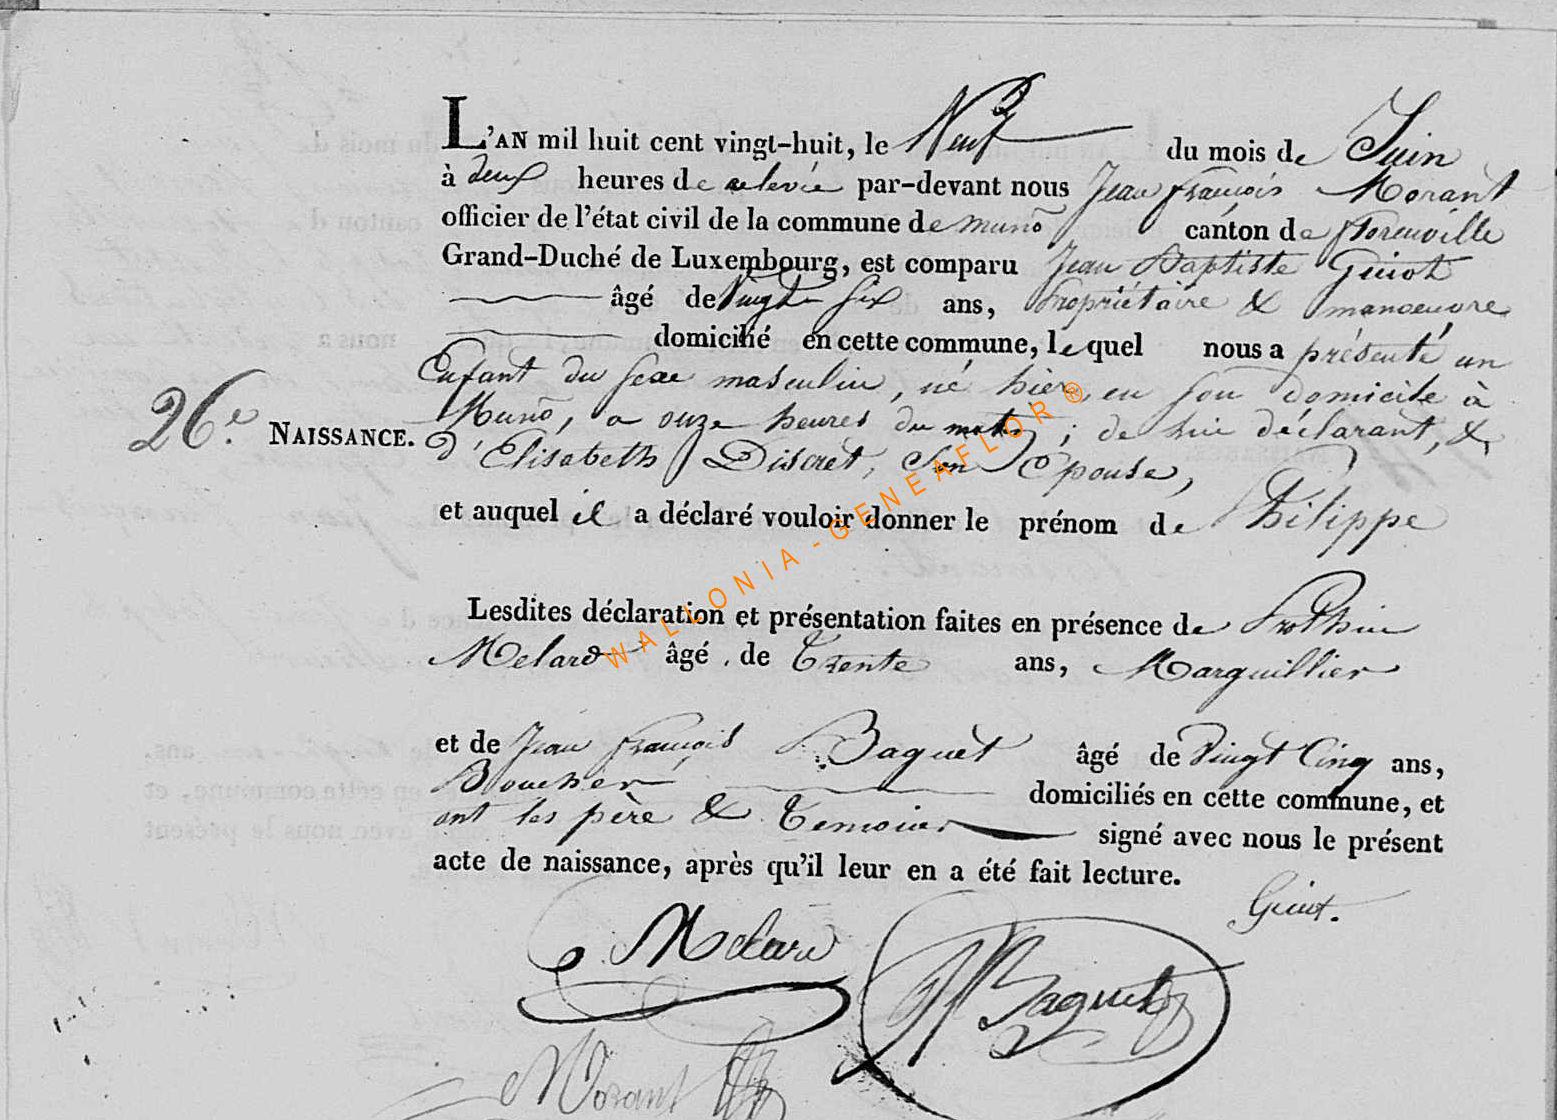 L'AN mil huit cent vingt-huit, le Neuf du mois de Juin
à deux heures de relevée par-devant nous Jean françois Morant
officier de l'état civil de la commune de muno canton de florenville
Grand-Duché de Luxembourg, est comparu Jean Baptiste Guiot
âgé de Vingt six ans, Propriétaire & manoeuvre
domicilié en cette commune, le quel nous a présenté un
Enfant du sexe masculin, né hier, en son domicile à
26.e NAISSANCE. Muno, a onze heures du matin; de lui déclarant, &
d'Elisabeth Discret, son Epouse,
et auquel il a déclaré vouloir donner le prénom de Philippe
Lesdites déclaration et présentation faites en présence de
Melard âgé de Trente ans, Marguillier
et de Jean françois Baquet âgé de Vingt Cinq ans,
Boucher, domiciliés en cette commune, et
ont les père & Temoins signé avec nous le présent
acte de naissance, après qu'il leur en a été fait lecture.
Guiot.
Melard
Baquet
Morant
WALLONIA-GENEAFLOR®